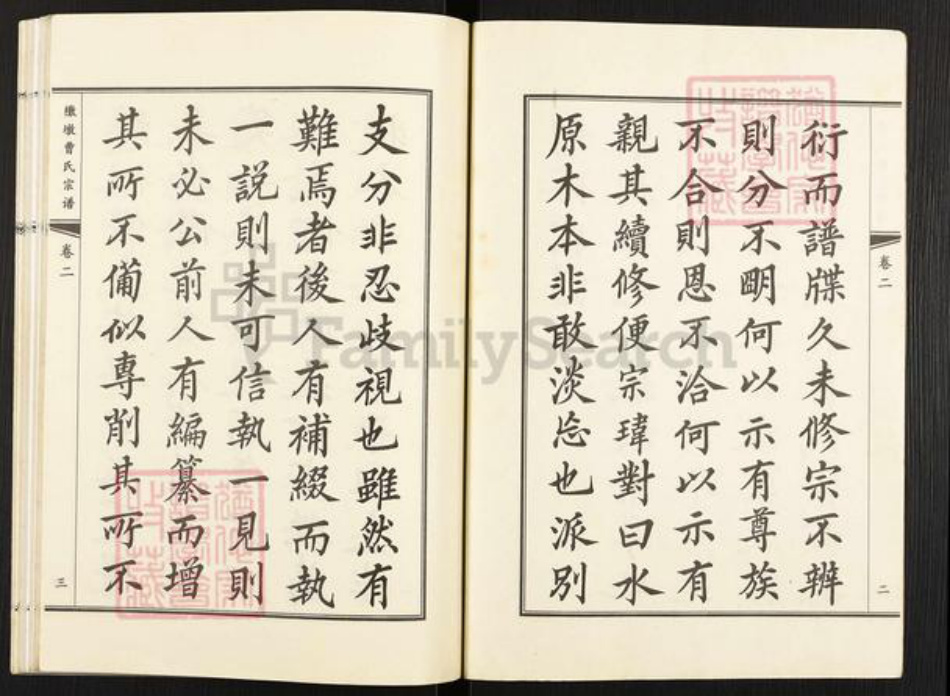 卷二
二
衍而譜牒久未修宗不辨
則分不明何以示有尊族
不合則恩不洽何以示有
親其續修便宗瑋對曰水
原木本非敢淡忘也派別
支分非忍歧視也雖然有
難焉者後人有補綴而執
一說則未可信執一見則
未必公前人有編纂而增
其所不備似專削其所不
墩曹氏宗譜
卷二
三
FamilySearch